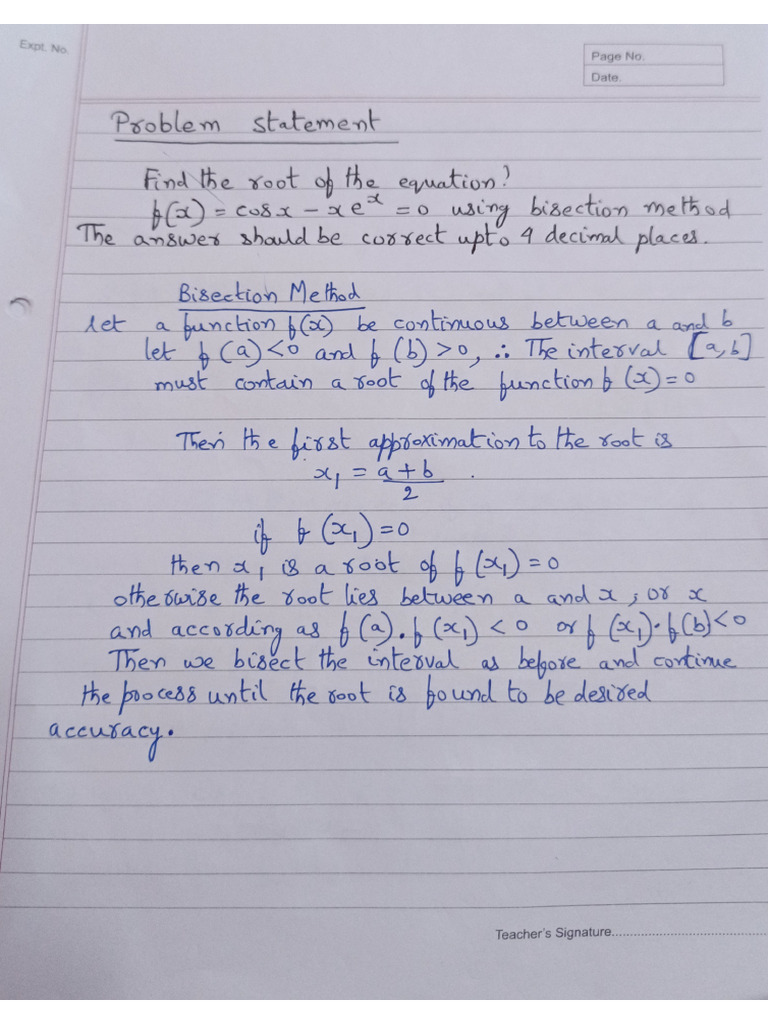 Expt. No.
Page No.
Date.
Problem statement
Find the root of the equation?
f(x) = cosx - xe^x = 0 using bisection method
The answer should be correct upto 4 decimal places.
Bisection Method
let a function f(x) be continuous between a and b
let f(a)<0 and f(b)>0, ∴ The interval [a,b]
must contain a root of the function f(x)=0
Then the first approximation to the root is
x₁ = a+b
2
if f(x₁)=0
then x₁ is a root of f(x₁)=0
otherwise the root lies between a and x, or x
and according as f(a).f(x₁) < 0 or f(x₁).f(b)<0
Then we bisect the interval as before and continue
the process until the root is found to be desired
accuracy.
Teacher's Signature..........................................